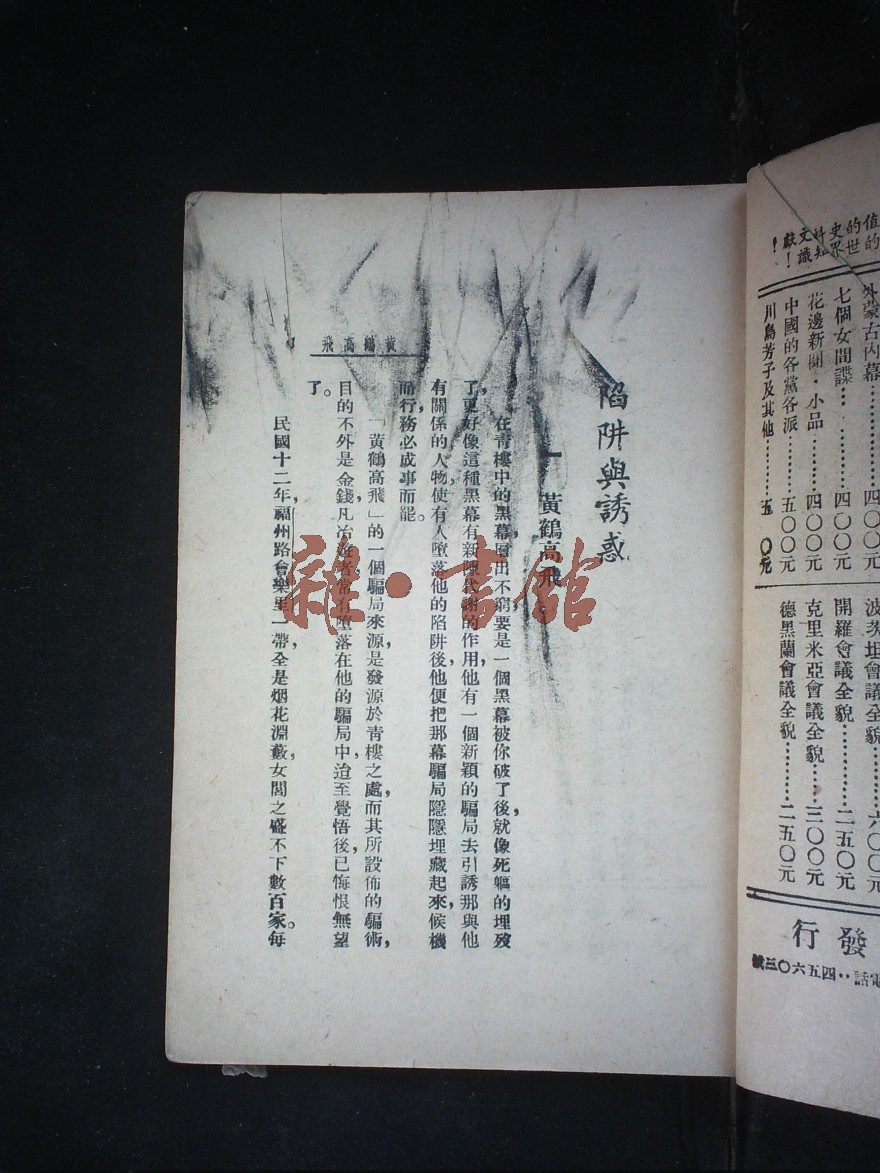 值的
的世
史界
料知
文識
獻！
！
外蒙古內幕
七個女間諜…………四〇〇元
花邊新聞・小品………四〇〇元
中國的各黨各派………五〇〇元
川島芳子及其他………五 〇元
波茨坦會議全貌………六〇〇元
開羅會議全貌…………二五〇元
克里米亞會議全貌……三〇〇元
德黑蘭會議全貌………二五〇元
發行
電話：四五六〇三號
陷阱與誘惑
一 黃鶴高飛
在青樓中的黑幕，層出不窮，要是一個黑幕被你破了後，就像死軀的埋歿
了，更好像這種黑幕有新陳代謝的作用，他有一個新穎的騙局，去引誘那與他
有關係的人物，使有人墮落他的陷阱後，他便把那幕騙局隱隱埋藏起來，候機
而行，務必成事而罷。
「黃鶴高飛」的一個騙局來源，是發源於青樓之處，而其所設佈的騙術，
目的不外是金錢，凡冶遊者常有墮落在他的騙局中，迨至覺悟後，已悔恨無望
了。
民國十二年，福州路會樂里一帶，全是烟花淵藪，女閭之盛不下數百家。每
黃鶴高飛
雜・書館